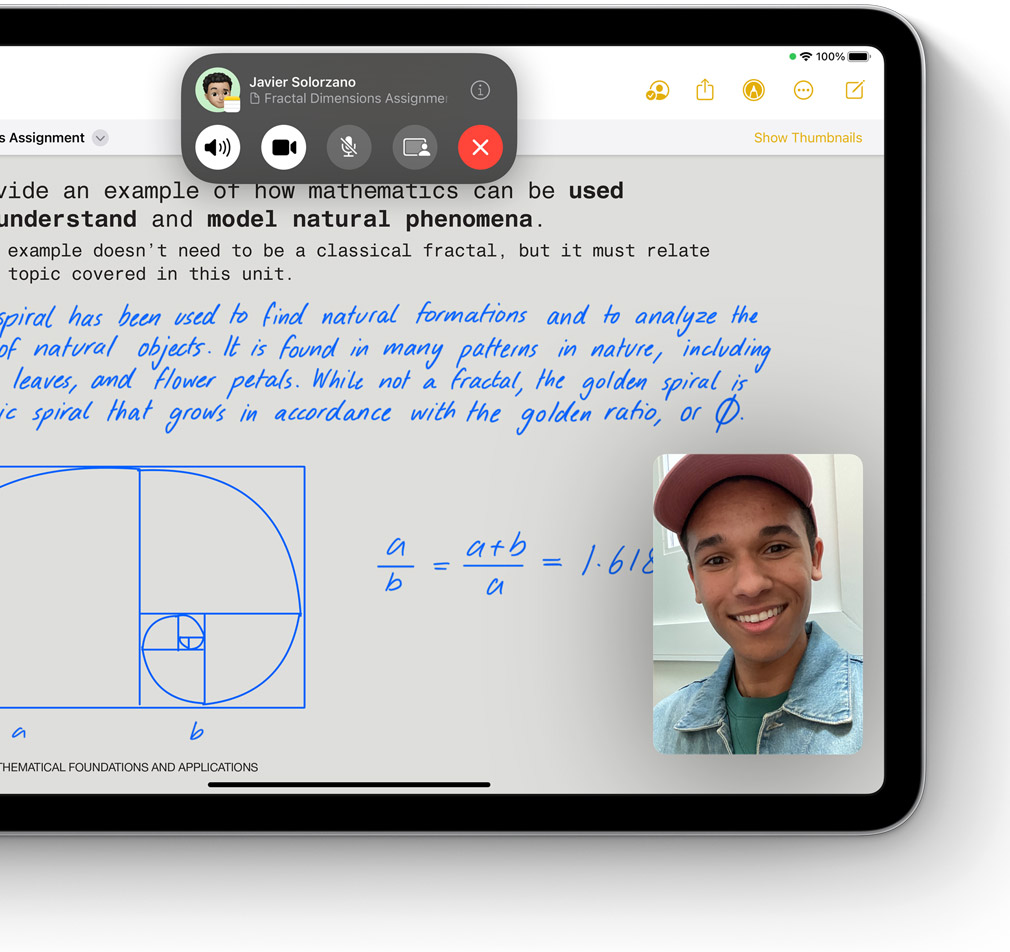 100%
Javier Solorzano
Fractal Dimensions Assignme
s Assignment
Show Thumbnails
vide an example of how mathematics can be used
understand and model natural phenomena.
example doesn't need to be a classical fractal, but it must relate
topic covered in this unit.
spiral has been used to find natural formations and to analyze the
of natural objects. It is found in many patterns in nature, including
leaves, and flower petals. While not a fractal, the golden spiral is
ic spiral that grows in accordance with the golden ratio, or Ø.
a/b = a+b/a = 1.618
a b
THEMATICAL FOUNDATIONS AND APPLICATIONS